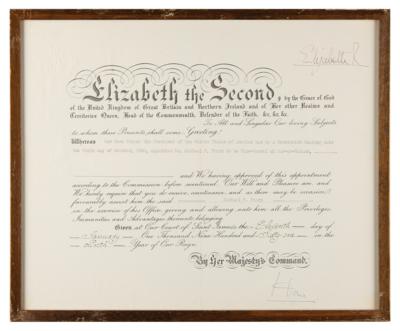 Elizabeth R
Elizabeth the Second, by the Grace of God
of the United Kingdom of Great Britain and Northern Ireland and of Her other Realms and
Territories Queen, Head of the Commonwealth, Defender of the Faith, &c, &c, &c.
To All and Singular Our loving Subjects
to whom these Presents shall come, Greeting!
Whereas the President of the United States of America has by a Commission bearing date
the day of October, 1960, appointed
and We having approved of this appointment
according to the Commission before mentioned, Our Will and Pleasure are, and
We hereby require that you do receive, countenance, and as there may be occasion,
favourably assist him the said
in the exercise of his Office, giving and allowing unto him all the Privileges,
Immunities and Advantages thereunto belonging.
Given at Our Court of Saint James's, the Eleventh day of
January One Thousand Nine Hundred and Sixty one in the
Year of Our Reign.
By Her Majesty's Command.